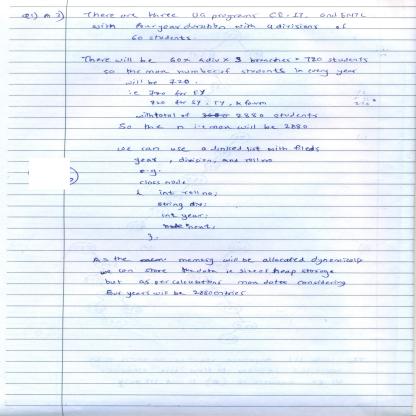 Q1) A 3) There are three UG programs CE, IT, and ENTC
with four year duration with 4 divisions of
60 students
There will be 60 x 4 div x 3 branches = 720 students
so the max number of students in every year
will be 720.
i.e 720 for FY
720 for SY, TY, & form
with total of 2880 students
So the n i.e max will be 2880
we can use a linked list with fileds
year, division, and roll no
e.g.
class node
{ int roll no;
string div;
int year;
node next;
};
As the memory will be allocated dynamically
we can store the data ie size of heap storage
but as per calculations max dates considering
Four years will be 2880 entries